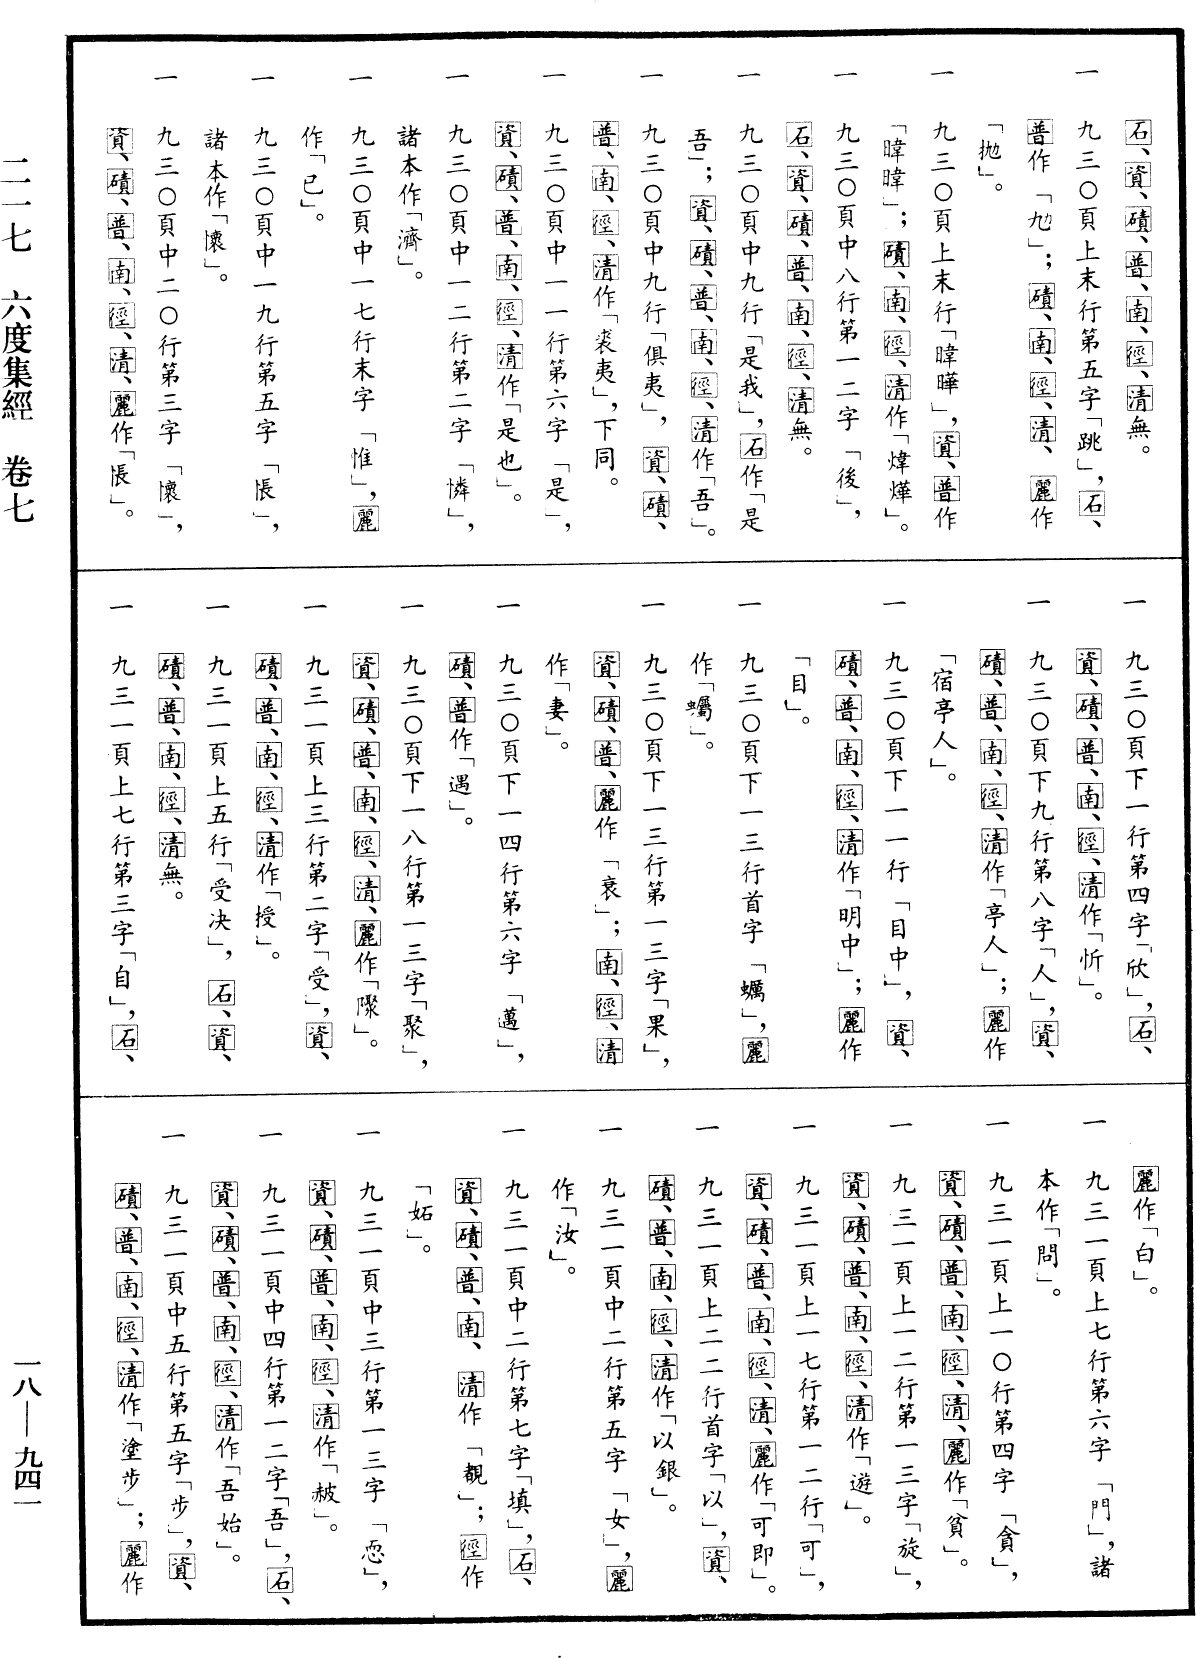 石、資、磧、普、南、徑、清無。
一　九三〇頁上末行第五字「跳」，石、
普作「灺」；磧、南、徑、清、麗作
「拋」。
一　九三〇頁上末行「暐曄」，資、普作
「暐暐」；磧、南、徑、清作「煒燁」。
一　九三〇頁中八行第一二字「後」，
石、資、磧、普、南、徑、清無。
一　九三〇頁中九行「是我」，石作「是
吾」；資、磧、普、南、徑、清作「吾」。
一　九三〇頁中九行「俱夷」，資、磧、
普、南、徑、清作「裘夷」，下同。
一　九三〇頁中一一行第六字「是」，
資、磧、普、南、徑、清作「是也」。
一　九三〇頁中一二行第二字「憐」，
諸本作「濟」。
一　九三〇頁中一七行末字「惟」，麗
作「已」。
一　九三〇頁中一九行第五字「悵」，
諸本作「懷」。
一　九三〇頁中二〇行第三字「懷」，
資、磧、普、南、徑、清、麗作「悵」。
一　九三〇頁下一行第四字「欣」，石、
資、磧、普、南、徑、清作「忻」。
一　九三〇頁下九行第八字「人」，資、
磧、普、南、徑、清作「亭人」；麗作
「宿亭人」。
一　九三〇頁下一一行「目中」，資、
磧、普、南、徑、清作「明中」；麗作
「目」。
一　九三〇頁下一三行首字「蠣」，麗
作「蠋」。
一　九三〇頁下一三行第一三字「果」，
資、磧、普、麗作「衰」；南、徑、清
作「妻」。
一　九三〇頁下一四行第六字「邁」，
磧、普作「遇」。
一　九三〇頁下一八行第一三字「聚」，
資、磧、普、南、徑、清、麗作「㗱」。
一　九三一頁上三行第二字「受」，資、
磧、普、南、徑、清作「授」。
一　九三一頁上五行「受决」，石、資、
磧、普、南、徑、清無。
一　九三一頁上七行第三字「自」，石、
麗作「白」。
一　九三一頁上七行第六字「門」，諸
本作「問」。
一　九三一頁上一〇行第四字「貪」，
資、磧、普、南、徑、清、麗作「貧」。
一　九三一頁上一二行第一三字「旋」，
資、磧、普、南、徑、清作「遊」。
一　九三一頁上一七行第一二行「可」，
資、磧、普、南、徑、清、麗作「可即」。
一　九三一頁上二二行首字「以」，資、
磧、普、南、徑、清作「以銀」。
一　九三一頁中二行第五字「女」，麗
作「汝」。
一　九三一頁中二行第七字「填」，石、
資、磧、普、南、清作「覩」；徑作
「妬」。
一　九三一頁中三行第一三字「恧」，
資、磧、普、南、徑、清作「赧」。
一　九三一頁中四行第一二字「吾」，石、
資、磧、普、南、徑、清作「吾始」。
一　九三一頁中五行第五字「步」，資、
磧、普、南、徑、清作「塗步」；麗作
二一一七　六度集經　卷七
一八—九四一